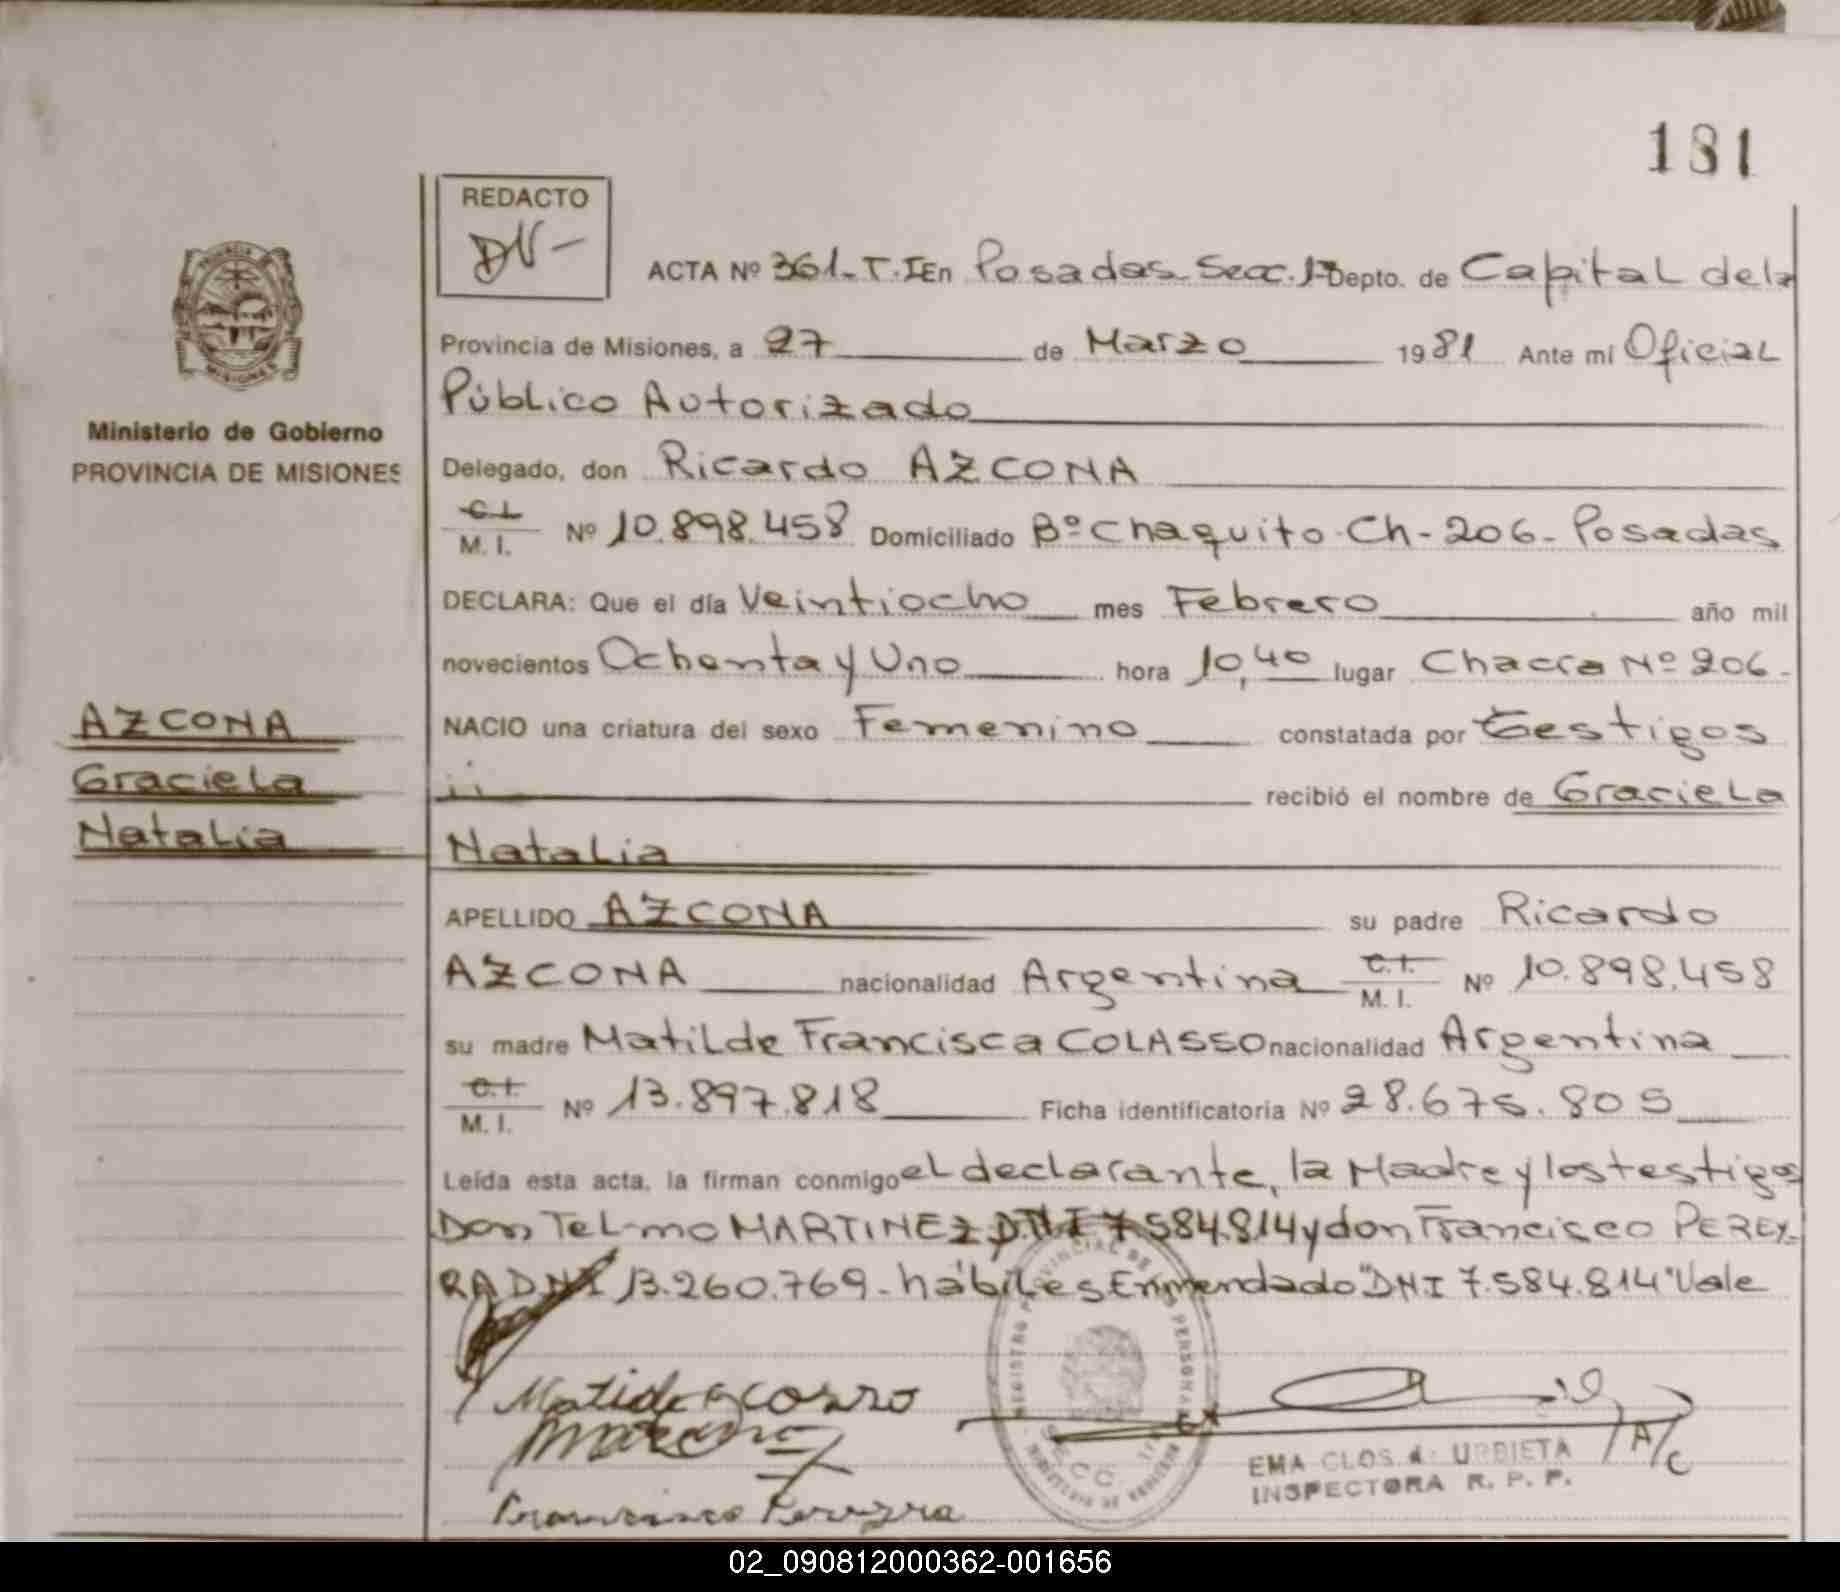 181
REDACTO
DN-
ACTA Nº 361-T.I En Posadas Secc. 1ª Depto. de Capital de la
Provincia de Misiones, a 27 de Marzo 1981 Ante mí Oficial
Público Autorizado
Ministerio de Gobierno
PROVINCIA DE MISIONES
Delegado, don Ricardo AZCONA
C.I. M. I. Nº 10.898.458 Domiciliado Bº Chaquito-Ch-206-Posadas
DECLARA: Que el día Veintiocho mes Febrero año mil
novecientos Ochenta y Uno hora 10,40 lugar Chacra Nº 206-
AZCONA
Graciela
Natalia
NACIO una criatura del sexo Femenino constatada por Testigos
recibió el nombre de Graciela
Natalia
APELLIDO AZCONA su padre Ricardo
AZCONA nacionalidad Argentina C.I. M. I. Nº 10.898.458
su madre Matilde Francisca COLASSO nacionalidad Argentina
C.I. M. I. Nº 13.897.818 Ficha identificatoria Nº 28.675.805
Leída esta acta, la firman conmigo el declarante, la Madre y los testigos
Don Telmo MARTINEZ DNI 7.584.814 y don Francisco PEREY-
RA DNI 13.260.769-hábiles Enmendado "DNI 7.584.814" Vale
EMA CLOS URBIETA
INSPECTORA R. P. P.
A/C
02_090812000362-001656